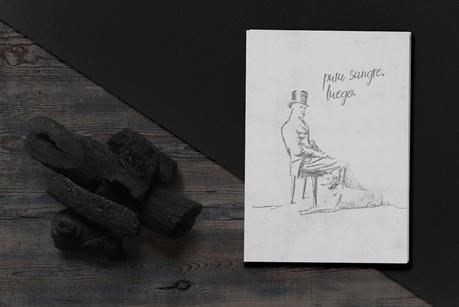 pura sangre.
luego.